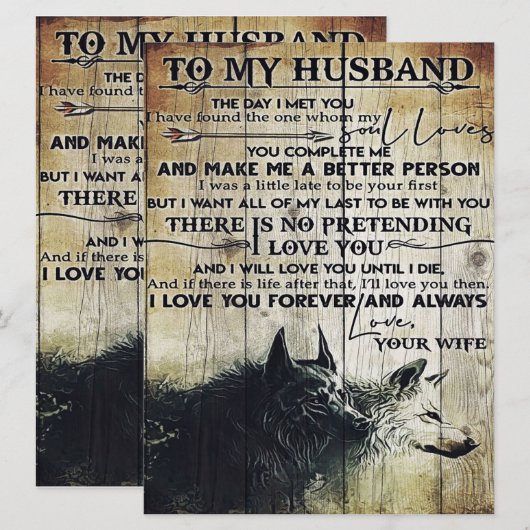 TO MY HUSBAND
THE D
I have found t
AND MAK
I was a
BUT I WANT AL
THERE
AND I W
And if there is
I LOVE YOU
TO MY HUSBAND
THE DAY I MET YOU
I have found the one whom my
soul loves
YOU COMPLETE ME
AND MAKE ME A BETTER PERSON
I was a little late to be your first
BUT I WANT ALL OF MY LAST TO BE WITH YOU
THERE IS NO PRETENDING
I LOVE YOU
AND I WILL LOVE YOU UNTIL I DIE,
And if there is life after that, I'll love you then.
I LOVE YOU FOREVER AND ALWAYS
Love,
YOUR WIFE